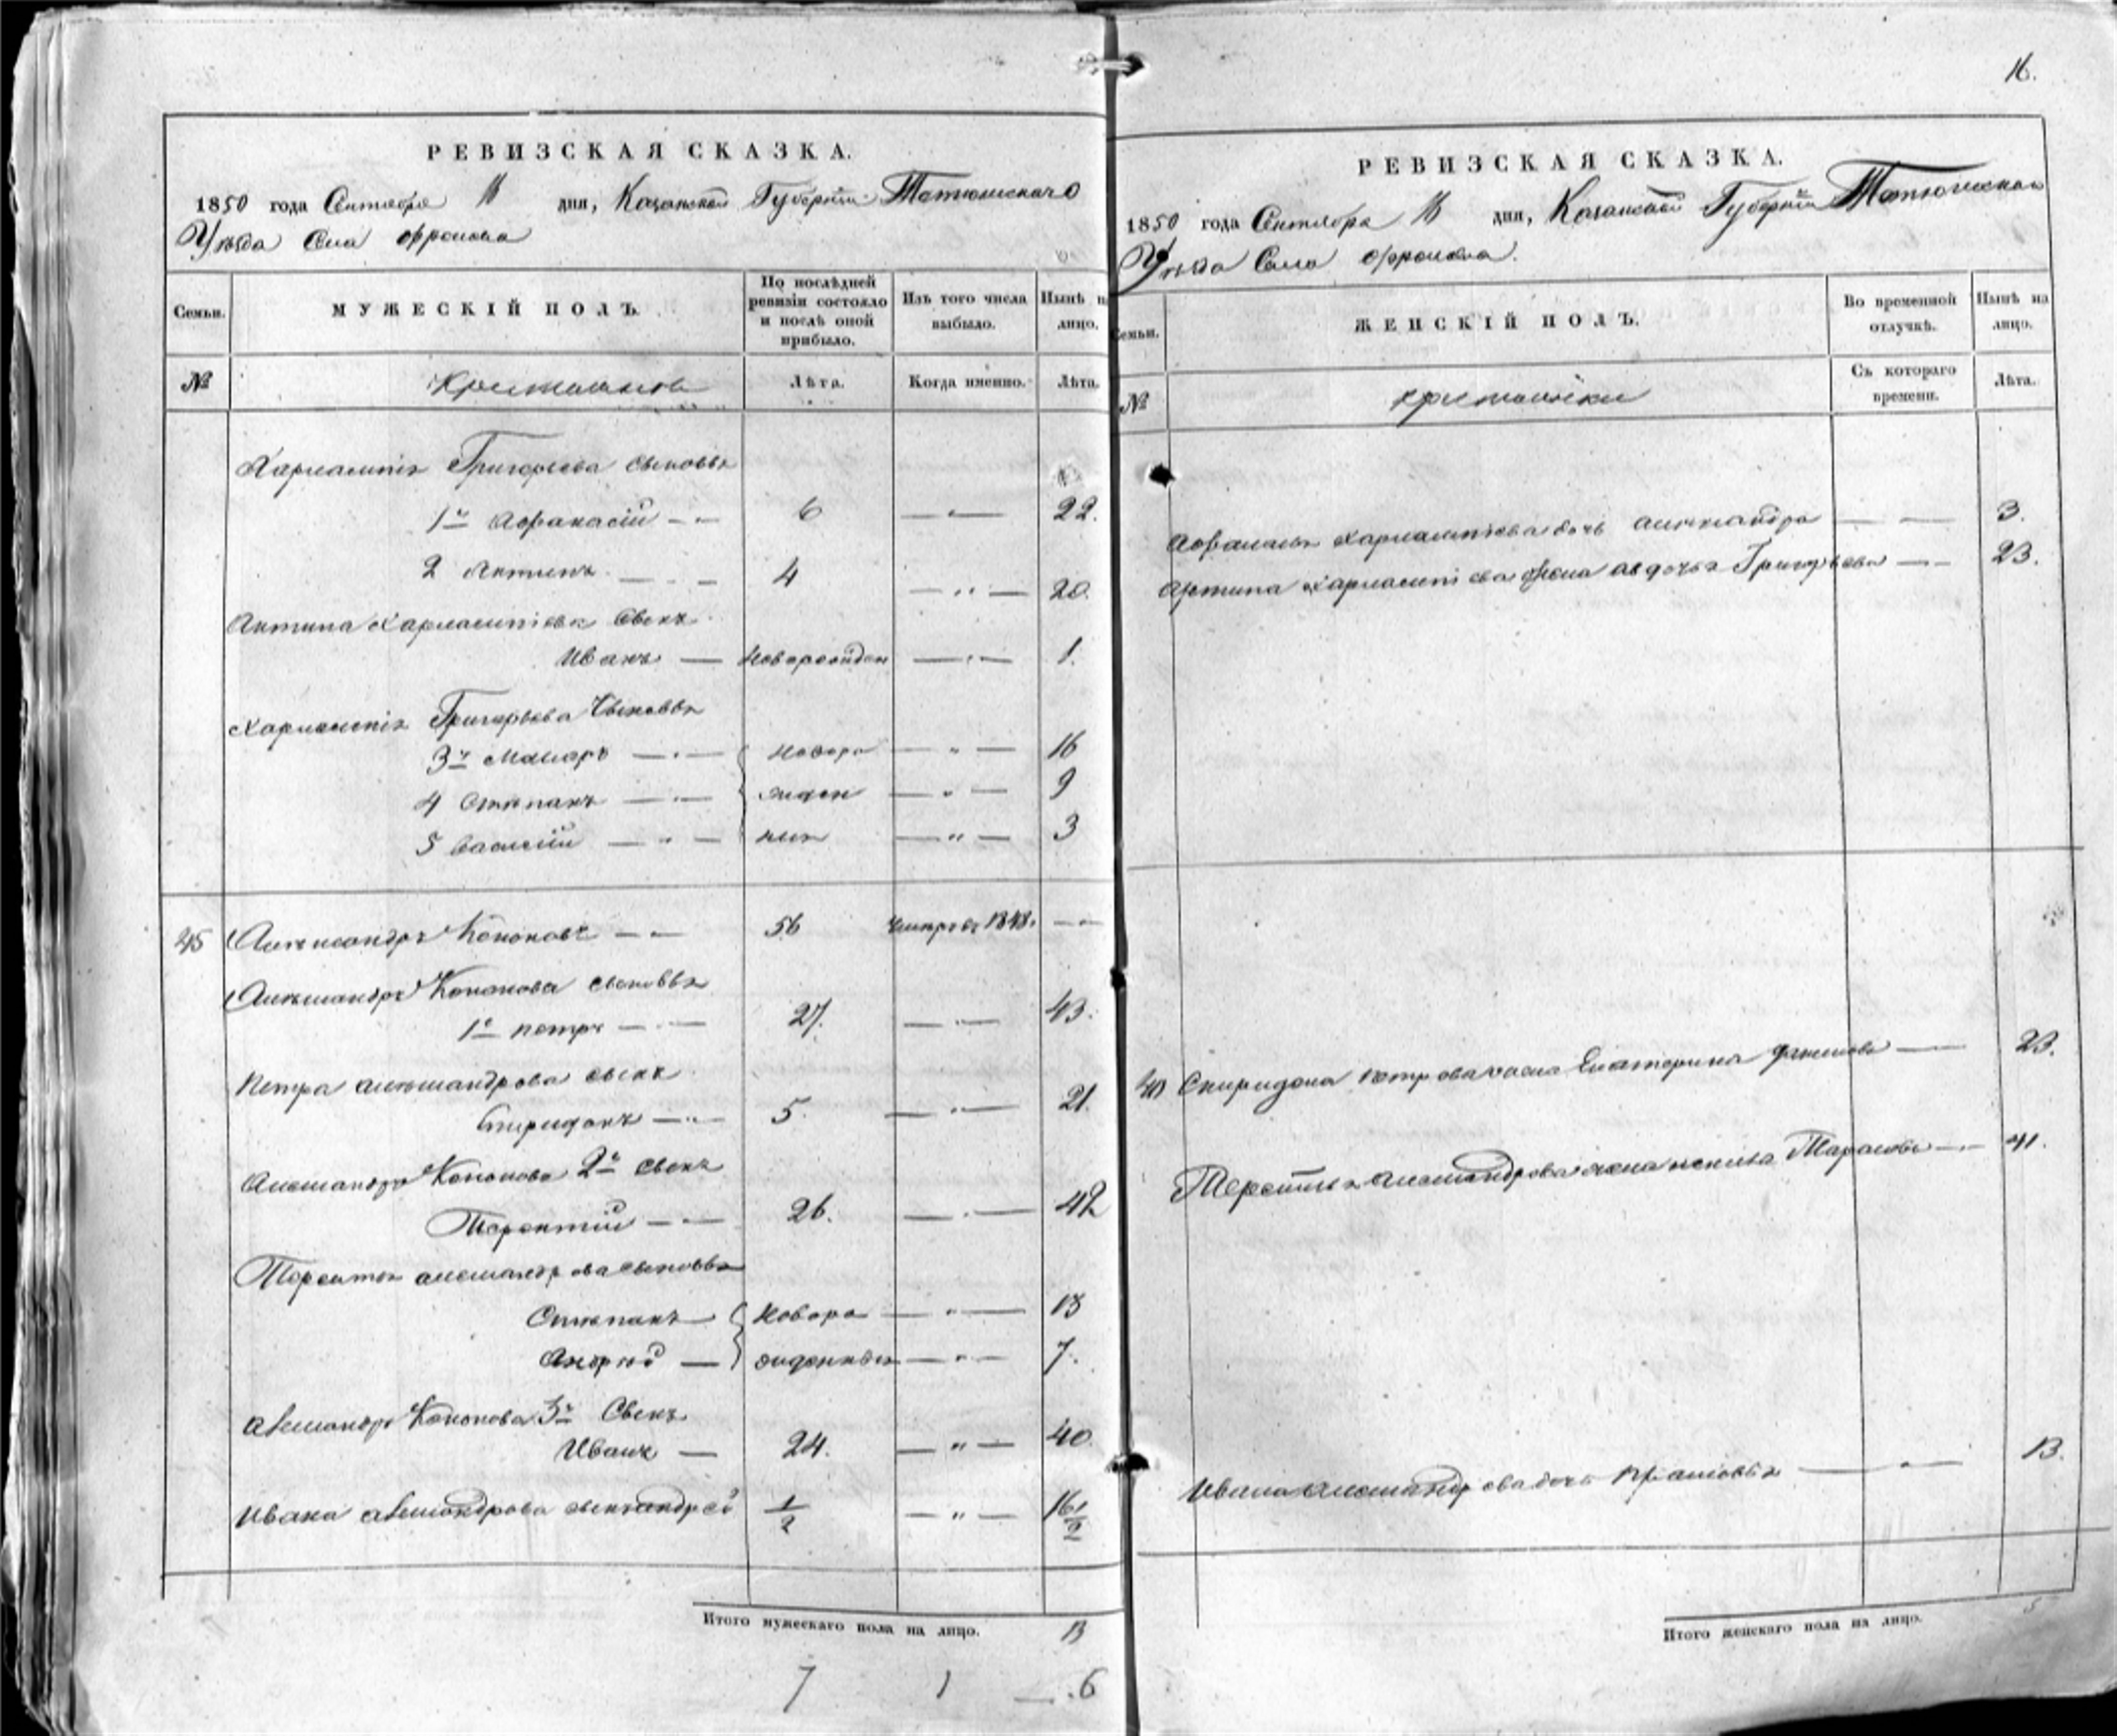 16.
РЕВИЗСКАЯ СКАЗКА.
1850 года Сентября 16 дня, Казанской Губернiи Тетюшскаго
Уѣзда Села
Семьи.
МУЖЕСКIЙ ПОЛЪ.
По послѣдней ревизiи состояло и послѣ оной прибыло.
Изъ того числа выбыло.
Нынѣ на лицо.
№
Крестьянъ
Лѣта.
Когда именно.
Лѣта.
Харлампiя Григорьева сыновья
1й Афанасiй 6 22.
2 Антипъ 4 20.
Антипа Харлампiева сынъ
Иванъ новорожден 1.
Харлампiя Григорьева сыновья
3й Макаръ новоро 16
4 Степанъ жден 9
5 Василiй ные 3
45 Александръ Кононовъ 56 умеръ въ 1848.
Александра Кононова сыновья
1й Петръ 27. 43.
Петра Александрова сынъ
Спиридонъ 5. 21.
Александра Кононова 2й сынъ
Терентiй 26. 42
Терентья Александрова сыновья
Степанъ новоро 13
Андрей жденные 7.
Александра Кононова 3й Сынъ
Иванъ 24. 40
Ивана Александрова сынъ Андрей 1/2 16 1/2
Итого мужескаго пола на лицо. 13
7 1 — 6
РЕВИЗСКАЯ СКАЗКА.
1850 года Сентября 16 дня, Казанской Губернiи Тетюшскаго
Уѣзда Села
Семьи.
ЖЕНСКIЙ ПОЛЪ.
Во временной отлучкѣ.
Нынѣ на лицо.
№
Крестьянки
Съ котораго времени.
Лѣта.
Афанасья Харлампiева дочь Александра 3.
Антипа Харлампiева жена Авдотья Григорьева 23.
Спиридона Петрова жена Екатерина 23.
Терентья Александрова жена Тарасова 41.
Ивана Александрова дочь Прасковья 13.
Итого женскаго пола на лицо. 5